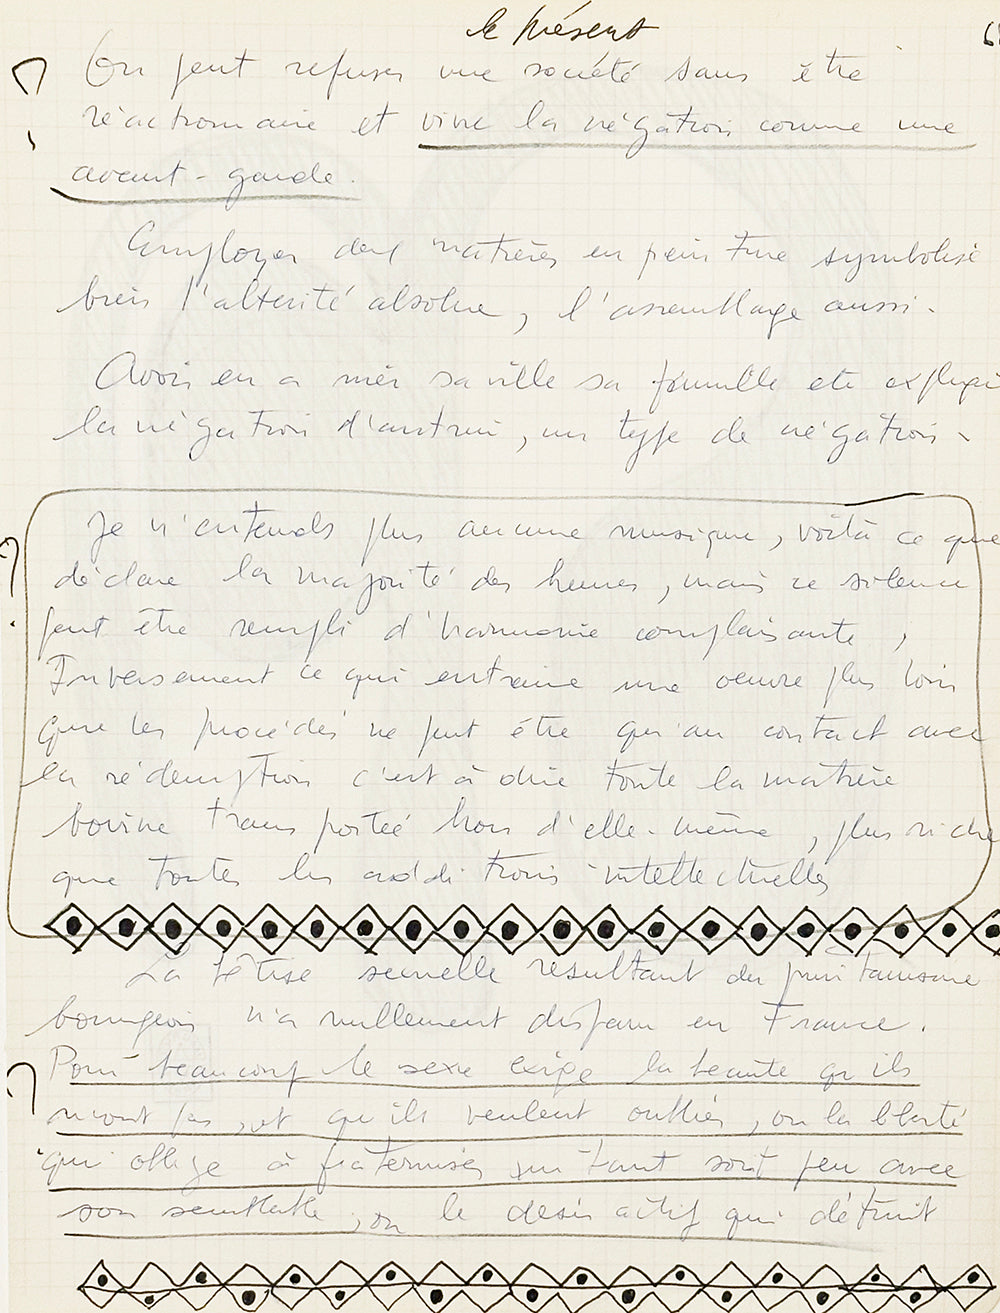 le présent
On peut refuser une société sans être
réactionnaire et vivre la négation comme une
avant-garde.
Employer des matières en peinture symbolise
bien l'altérité absolue, l'assemblage aussi.
Avoir en a mër sa ville sa famille etc explique
la négation d'autrui, un type de négation.
Je n'entends plus aucune musique, voilà ce que
déclare la majorité des heures, mais ce silence
peut être rempli d'harmonie complaisante,
Inversement ce qui entraine une oeuvre plus loin
que les procédés ne peut être qu'un contact avec
la rédemption c'est à dire toute la matière
bovine transportée hors d'elle-même, plus riche
que toutes les additions intellectuelles
La bêtise sexuelle résultant du puritanisme
bourgeois n'a nullement disparu en France.
Pour beaucoup le sexe exige la beauté qu'ils
n'ont pas, et qu'ils veulent oublier, ou la liberté
qui oblige à fraterniser un tant soit peu avec
son semblable, ou le désir actif qui détruit